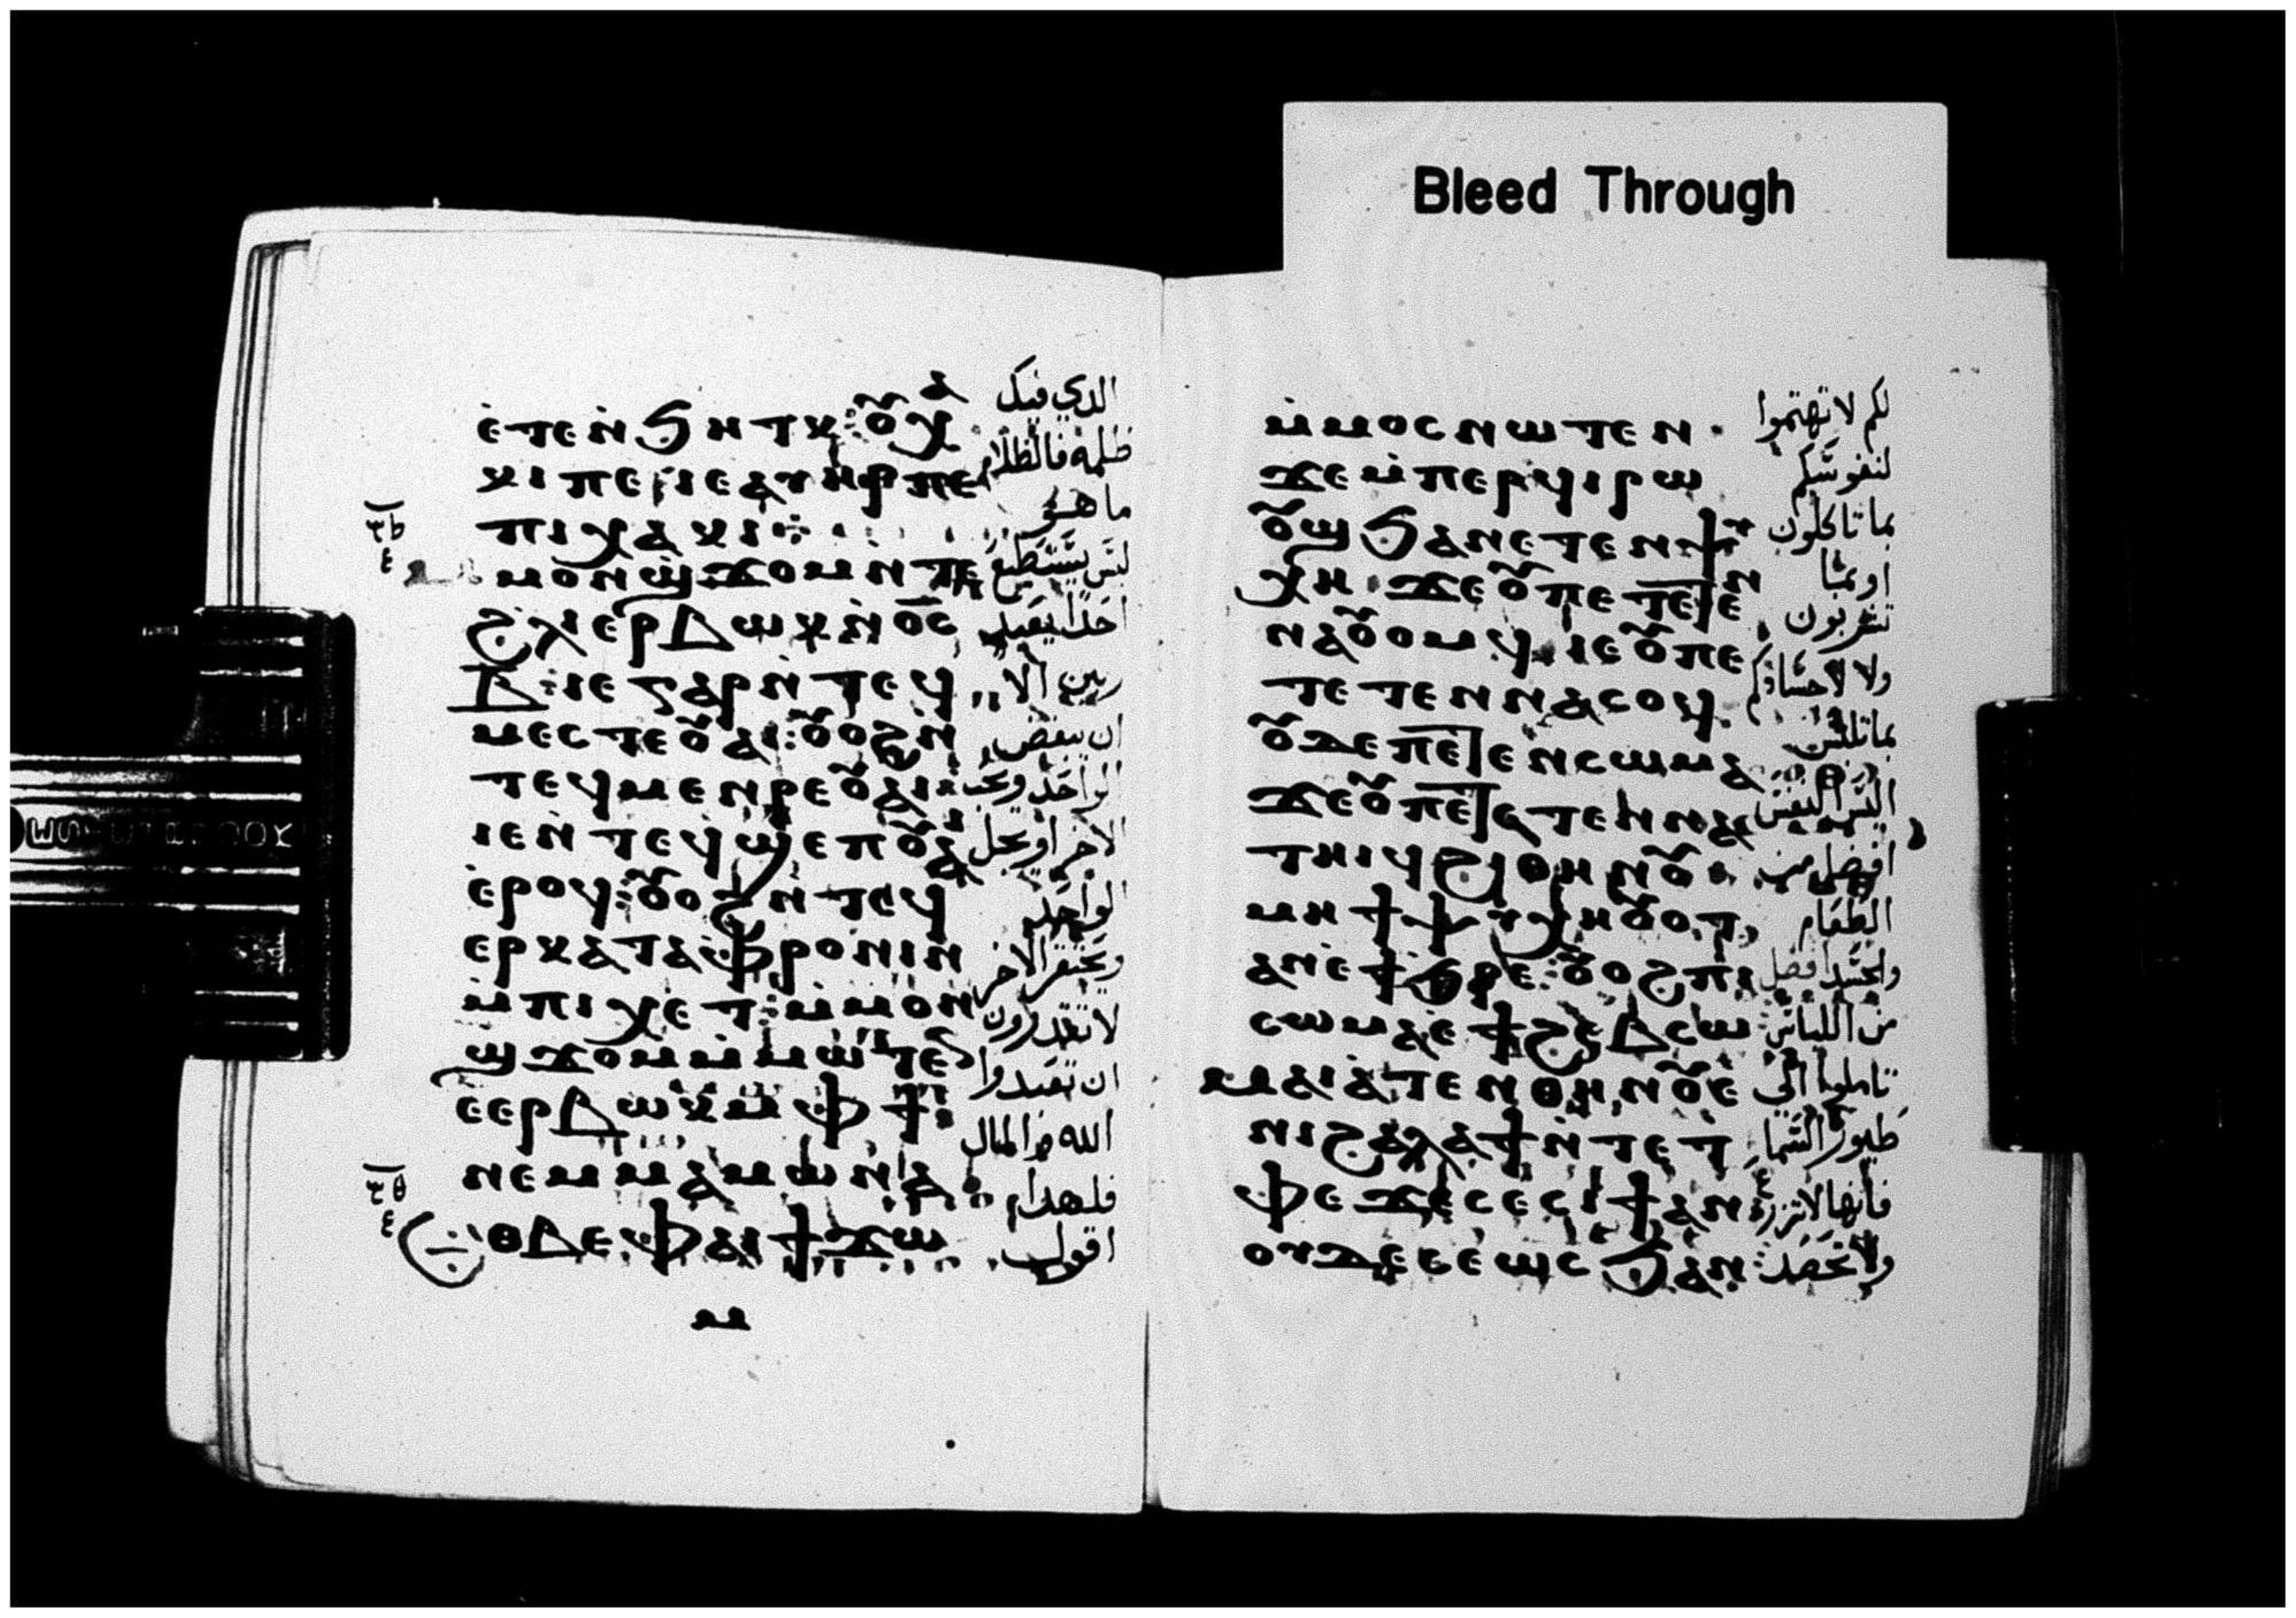 ⲉ̇ⲧⲉⲛ̇ϧⲏⲧⲕ : ⲟⲩⲭⲁ الدي فيك
ⲕⲓⲡⲉ ⲓⲉⲁⲩⲏⲣⲡⲉ ظلمه فالظلام
ⲡⲓⲭⲁⲕⲓ ما هو
ⲙⲟⲛϣϫⲟⲙⲛ̇ⲧⲉ ليس يستطيع
ϩⲗⲓⲉⲣⲃⲱⲕⲛ̇ⲟ̅ⲥ̅ احدا يعبد
ⲃ̅ : ⲓⲉⲅⲁⲣⲛ̇ⲧⲉϥ ربين الا
ⲙⲉⲥⲧⲉⲟⲩⲁⲓ : ⲟⲩⲟϩⲛ̇ ان يبغض
ⲧⲉϥⲙⲉⲛⲣⲉⲟⲩⲁⲓ الواحد ويحب
ⲓⲉⲛ̇ⲧⲉϥϣⲉⲡⲟⲩⲁⲓ الاخر او يجل
ⲉ̇ⲣⲟϥ : ⲟⲩⲟϩⲛ̇ⲧⲉϥ الواحد
ⲉⲣⲕⲁⲧⲁⲫⲣⲟⲛⲓⲛ ويحتقر الاخر
ⲙ̇ⲡⲓⲭⲉⲧ : ⲙ̇ⲙⲟⲛ لا تقدرون
ϣϫⲟⲙⲙ̇ⲙⲱⲧⲉⲛ ان تعبدوا
ⲉⲉⲣⲃⲱⲕⲙ̇ⲫϯ الله والمال
ⲛⲉⲙⲙⲁⲙⲱⲛⲁ فلهدا
ⲉⲑⲃⲉⲫⲁⲓϯϫⲱ اقول
ⲙ
Bleed Through
ⲙ̇ⲙⲟⲥⲛⲱⲧⲉⲛ لكم لا تهتموا
ϫⲉⲙ̇ⲡⲉⲣϥⲓⲣⲱ لنفوسكم
ⲟⲩϣ ϧⲁⲛⲉⲧⲉⲛⲯⲩ بما تاكلون
ⲭⲏ ϫⲉⲟⲩⲡⲉⲧⲉⲧⲉⲛ او بما
ⲛⲁⲟⲩⲟⲙϥ ⲓⲉⲟⲩⲡⲉ تشربون
ⲧⲉⲧⲉⲛⲛⲁⲥⲟϥ ولا لاجسادكم
ⲟⲩⲇⲉⲡⲉⲧⲉⲛⲥⲱⲙⲁ بما تلبس
ϫⲉⲟⲩⲡⲉⲧⲉⲧⲉⲛⲛⲁ اليس النفس
ⲧⲏⲓϥϩⲓⲑⲏⲛⲟⲩ افضل من
ⲙⲏϯⲯⲩⲭⲏⲟⲩⲟⲧ الطعام
ⲁⲛⲉϯϧⲣⲉ : ⲟⲩⲟϩⲡⲓ والجسد افضل
ⲥⲱⲙⲁⲉϯϩⲉⲃⲥⲱ من اللباس
ⲙⲁⲓⲁⲧⲉⲛⲑⲏⲛⲟⲩⲉ تاملوا الي
ⲛⲓϩⲁⲗⲁϯⲛ̇ⲧⲉⲧ طيور السما
ⲫⲉϫⲉⲥⲉⲥⲓϯⲁⲛ فانها لا تزرع
ⲟⲩⲇⲉⲥⲉⲱⲥϧⲁⲛ ولا تحصد